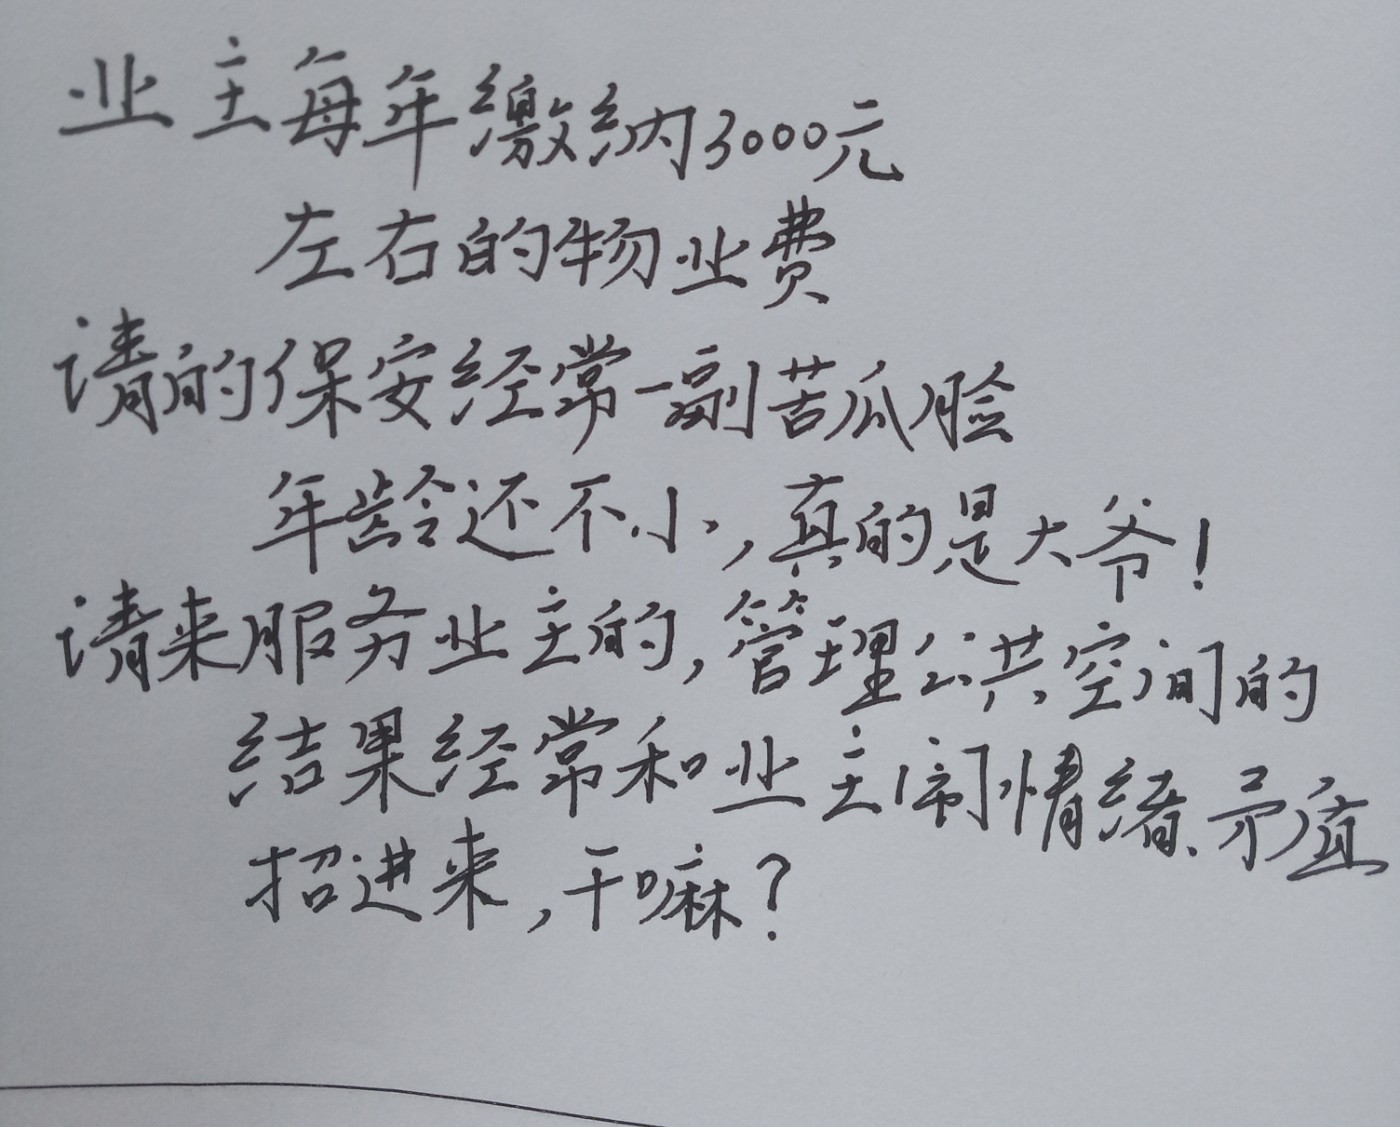 业主每年缴纳3000元
左右的物业费
请的保安经常一副苦瓜脸
年龄还不小,真的是大爷!
请来服务业主的,管理公共空间的
结果经常和业主闹情绪、矛盾
招进来,干嘛?